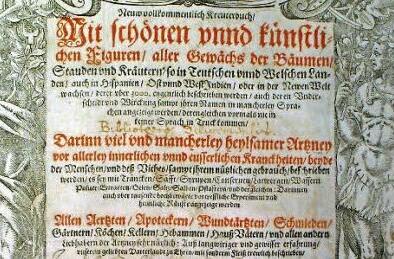 Neuw vollkommentlich Kreuterbuch/
Mit schönen vnnd künstli-
chen Figuren/ aller Gewächs der Bäumen/
Stauden vnd Kräutern/ so in Teutschen vnnd Welschen Lan-
den/ auch in Hispanien/ Ost vnnd West Indien/ oder in der Newen Welt
wachsen/ deren vber 3000. eygentlich beschrieben werden/ auch deren Vnder-
scheidt vnd Wirckung sampt jhren Namen in mancherley Spra-
chen angezeigt werden/ derengleichen vormals nie in
keiner Sprach in Truck kommen/
Darinn viel vnd mancherley heylsamer Artzney
vor allerley innerlichen vnnd eusserlichen Kranckheiten/ beyde
der Menschen/ vnd deß Viehes/ sampt jhrem nützlichen gebrauch/ beschrieben
werden/ es sey mit Trancken/ Säfft/ Syrupen/ Conserven/ Wassern
Pulver Extracten/ Oelen/ Saltz/ Salben/ Pflastern/ vnd dergleichen/ Darinnen
auch vber
Allen Aertzten/ Apoteckern/ Wundärtzten/ Schmieden/
Gärtnern/ Köchen/ Kellern/ Hebammen/ Hauß Vätern/ vnd allen andern
Liebhabern der Artzney sehr nützlich: Auß langwiriger vnd gewisser erfahrung/
vnserm geliebten Vatterlandt zu Ehren/ mit sonderm Fleiß trewlich beschrieben/